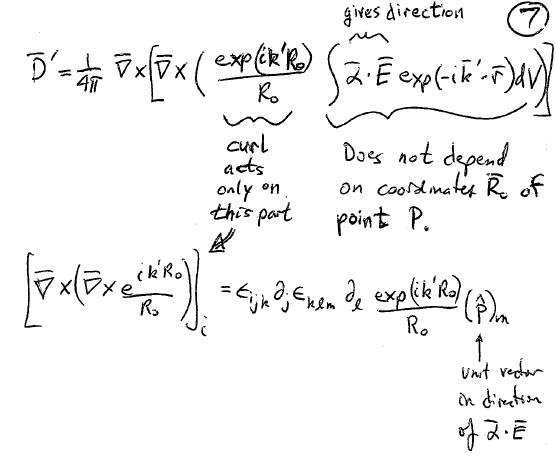 gives direction
7
D̄' = 1/4π ∇̄ × [∇̄ × (exp(ik'R₀)/R₀ ∫ᾱ·Ē exp(-ik̄'·r̄)dV)]
curl
acts
only on
this part
Does not depend
on coordinates R̄₀ of
point P.
[∇̄ × (∇̄ × e^{ik'R₀}/R₀)]ᵢ = ϵᵢⱼₖ ∂ⱼ ϵₖₗₘ ∂ₗ exp(ik'R₀)/R₀ (P̂)ₘ
unit vector
in direction
of ᾱ·Ē